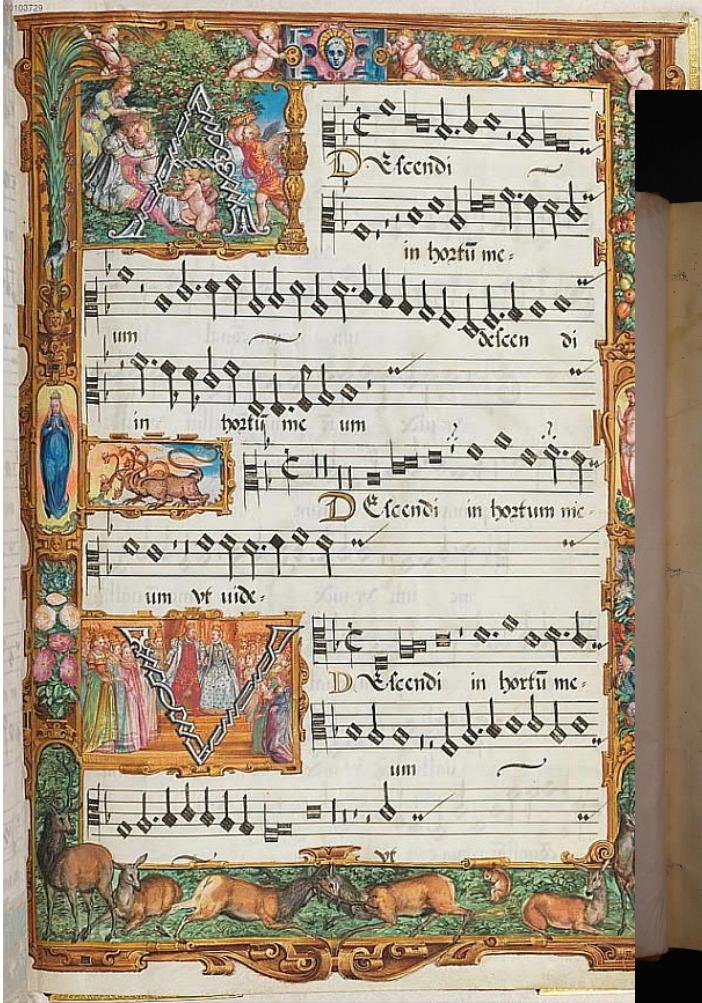 00103729
DEscendi
in hortū me=
um descen di
in hortū me um
DEscendi in hortum me=
um vt uide=
DEscendi in hortū me=
um
vt